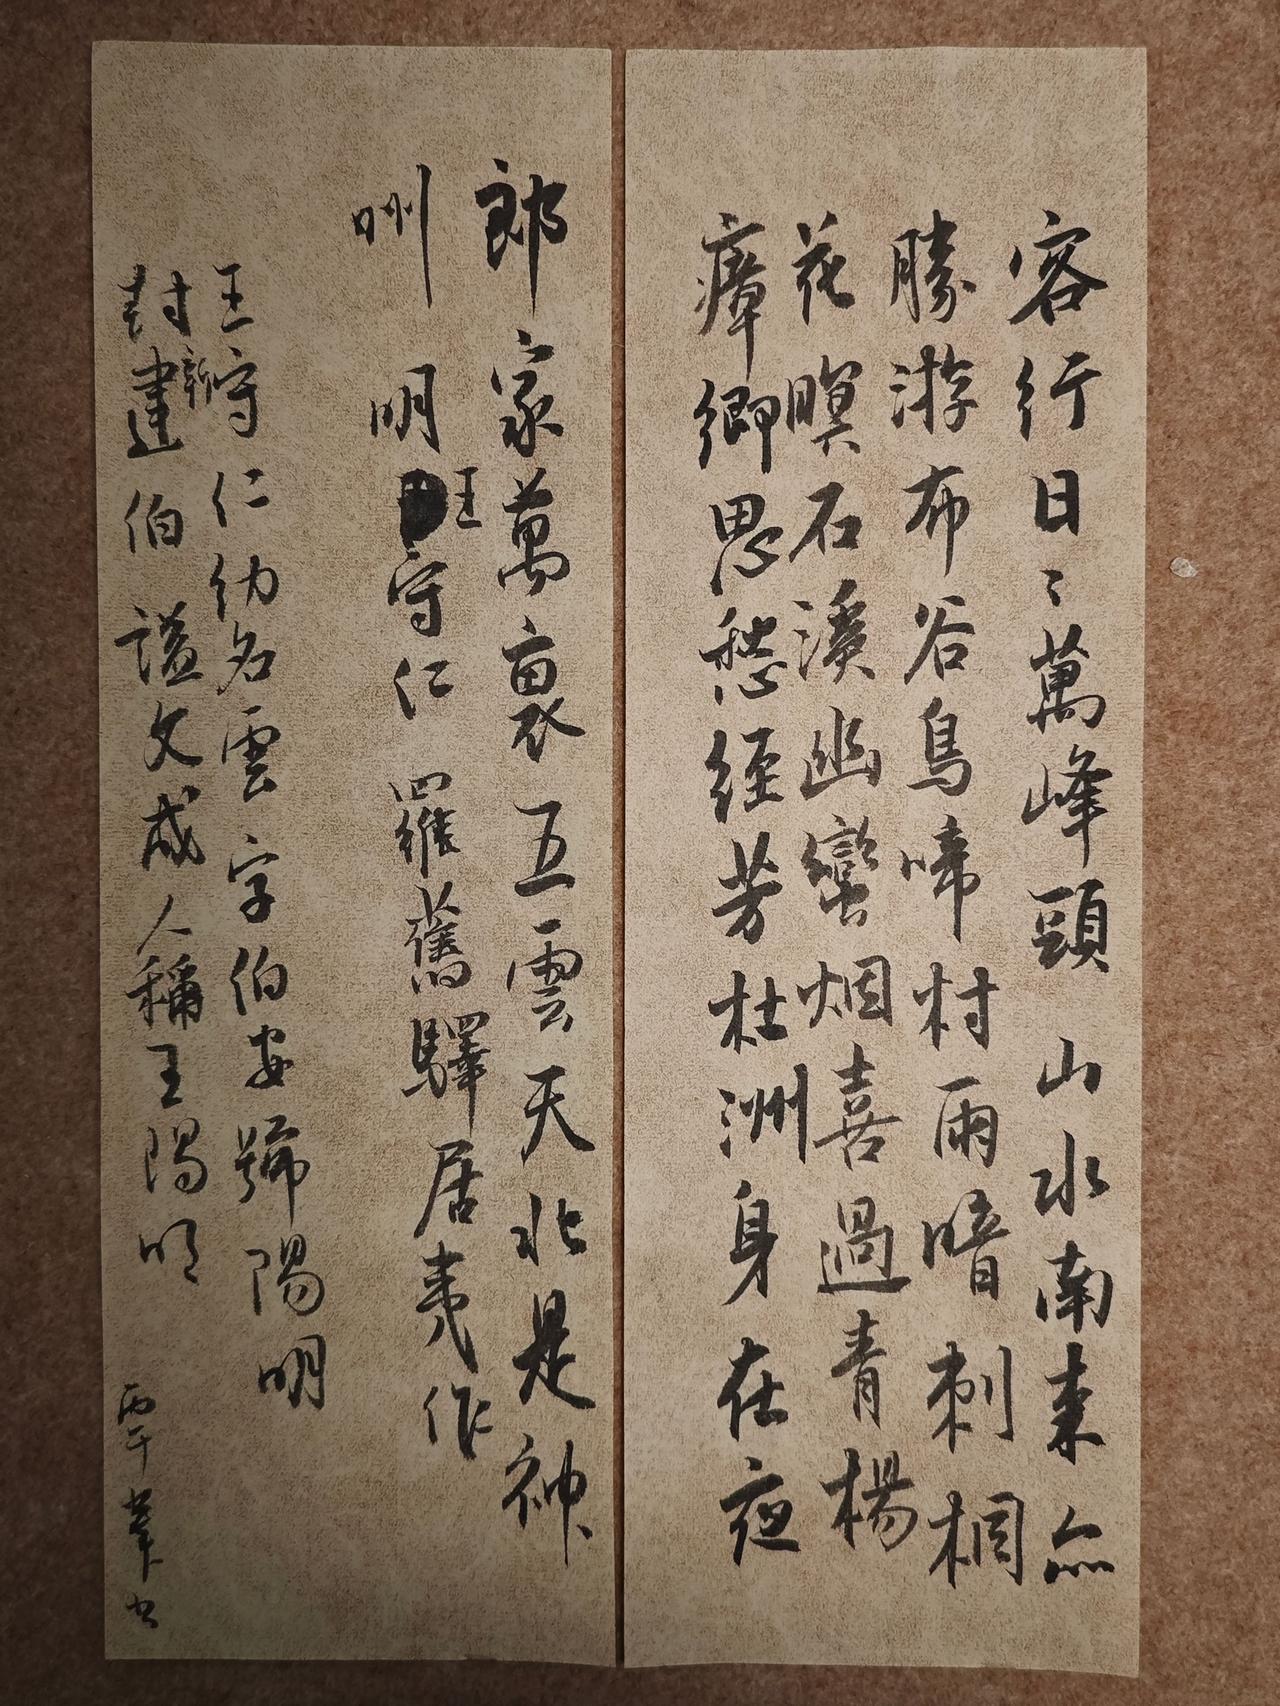 客行日〻萬峰頭山水南来亦
勝游布谷鳥啼村雨暗刺桐
花暝石溪幽蠻烟喜過青楊
瘴鄉思愁經芳杜洲身在夜
郎家萬裏五雲天北是神
州 明王守仁羅舊驛居夷作
王守仁幼名雲字伯安號陽明
封新建伯謚文成人稱王陽明
丙午 書